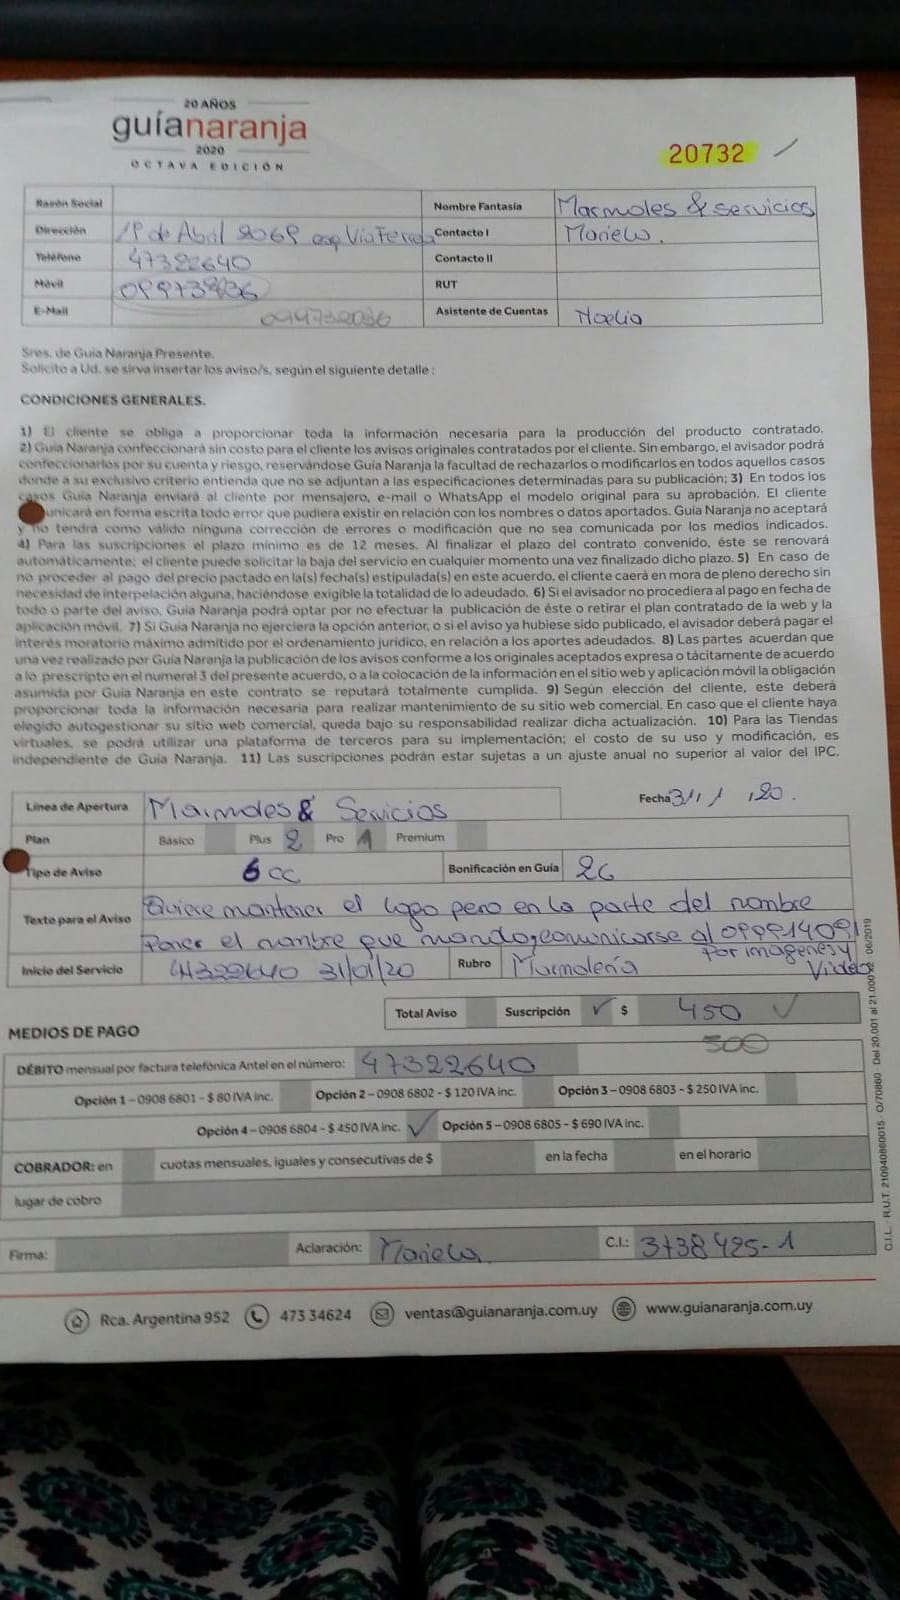 20 AÑOS
guíanaranja
2020
OCTAVA EDICIÓN
20732
Razón Social
Nombre Fantasía Marmoles & servicios
Dirección 19 de Abril 2069 esq Via Ferrea
Contacto I Mariela.
Teléfono 47322640
Contacto II
Móvil
RUT
E-Mail 099732036
Asistente de Cuentas Noelia
Sres. de Guía Naranja Presente.
Solicito a Ud. se sirva insertar los aviso/s, según el siguiente detalle :
CONDICIONES GENERALES.
1) El cliente se obliga a proporcionar toda la información necesaria para la producción del producto contratado.
2) Guía Naranja confeccionará sin costo para el cliente los avisos originales contratados por el cliente. Sin embargo, el avisador podrá
confeccionarlos por su cuenta y riesgo, reservándose Guía Naranja la facultad de rechazarlos o modificarlos en todos aquellos casos
donde a su exclusivo criterio entienda que no se adjuntan a las especificaciones determinadas para su publicación; 3) En todos los
casos Guía Naranja enviará al cliente por mensajero, e-mail o WhatsApp el modelo original para su aprobación. El cliente
unicará en forma escrita todo error que pudiera existir en relación con los nombres o datos aportados. Guía Naranja no aceptará
y no tendrá como válido ninguna corrección de errores o modificación que no sea comunicada por los medios indicados.
4) Para las suscripciones el plazo mínimo es de 12 meses. Al finalizar el plazo del contrato convenido, éste se renovará
automáticamente; el cliente puede solicitar la baja del servicio en cualquier momento una vez finalizado dicho plazo. 5) En caso de
no proceder al pago del precio pactado en la(s) fecha(s) estipulada(s) en este acuerdo, el cliente caerá en mora de pleno derecho sin
necesidad de interpelación alguna, haciéndose exigible la totalidad de lo adeudado. 6) Si el avisador no procediera al pago en fecha de
todo o parte del aviso, Guía Naranja podrá optar por no efectuar la publicación de éste o retirar el plan contratado de la web y la
aplicación móvil. 7) Si Guía Naranja no ejerciera la opción anterior, o si el aviso ya hubiese sido publicado, el avisador deberá pagar el
interés moratorio máximo admitido por el ordenamiento jurídico, en relación a los aportes adeudados. 8) Las partes acuerdan que
una vez realizado por Guía Naranja la publicación de los avisos conforme a los originales aceptados expresa o tácitamente de acuerdo
a lo prescripto en el numeral 3 del presente acuerdo, o a la colocación de la información en el sitio web y aplicación móvil la obligación
asumida por Guía Naranja en este contrato se reputará totalmente cumplida. 9) Según elección del cliente, este deberá
proporcionar toda la información necesaria para realizar mantenimiento de su sitio web comercial. En caso que el cliente haya
elegido autogestionar su sitio web comercial, queda bajo su responsabilidad realizar dicha actualización. 10) Para las Tiendas
virtuales, se podrá utilizar una plataforma de terceros para su implementación; el costo de su uso y modificación, es
independiente de Guía Naranja. 11) Las suscripciones podrán estar sujetas a un ajuste anual no superior al valor del IPC.
Línea de Apertura Marmoles & Servicios
Fecha 31/1/20.
Plan Básico Plus 2 Pro 1 Premium
Tipo de Aviso 6 cc Bonificación en Guía 2G
Texto para el Aviso Quiere mantener el logo pero en la parte del nombre
Poner el nombre que mando, comunicarse al 099914091
por imagenes y
Video
Inicio del Servicio 47322640 31/01/20 Rubro Marmolería
Total Aviso Suscripción ✓ $ 450 ✓
500
MEDIOS DE PAGO
DÉBITO mensual por factura telefónica Antel en el número: 47322640
Opción 1 – 0908 6801 - $ 80 IVA inc. Opción 2 – 0908 6802 - $ 120 IVA inc. Opción 3 – 0908 6803 - $ 250 IVA inc.
Opción 4 – 0908 6804 - $ 450 IVA inc. ✓ Opción 5 – 0908 6805 - $ 690 IVA inc.
COBRADOR: en cuotas mensuales, iguales y consecutivas de $ en la fecha en el horario
lugar de cobro
Firma: Aclaración: Mariela C.I.: 3738425-1
C.I.L. - R.U.T. 210940860015 - O/70860 - Del 20.001 al 21.000 06/2019
Rca. Argentina 952 473 34624 ventas@guianaranja.com.uy www.guianaranja.com.uy